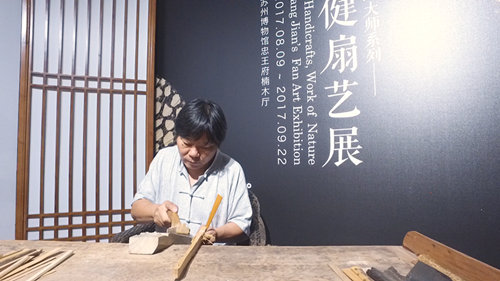 大师系列
健扇艺展
Handicrafts, Work of Nature
ang Jian's Fan Art Exhibition
2017.08.09 ~ 2017.09.22
苏州博物馆忠王府楠木厅